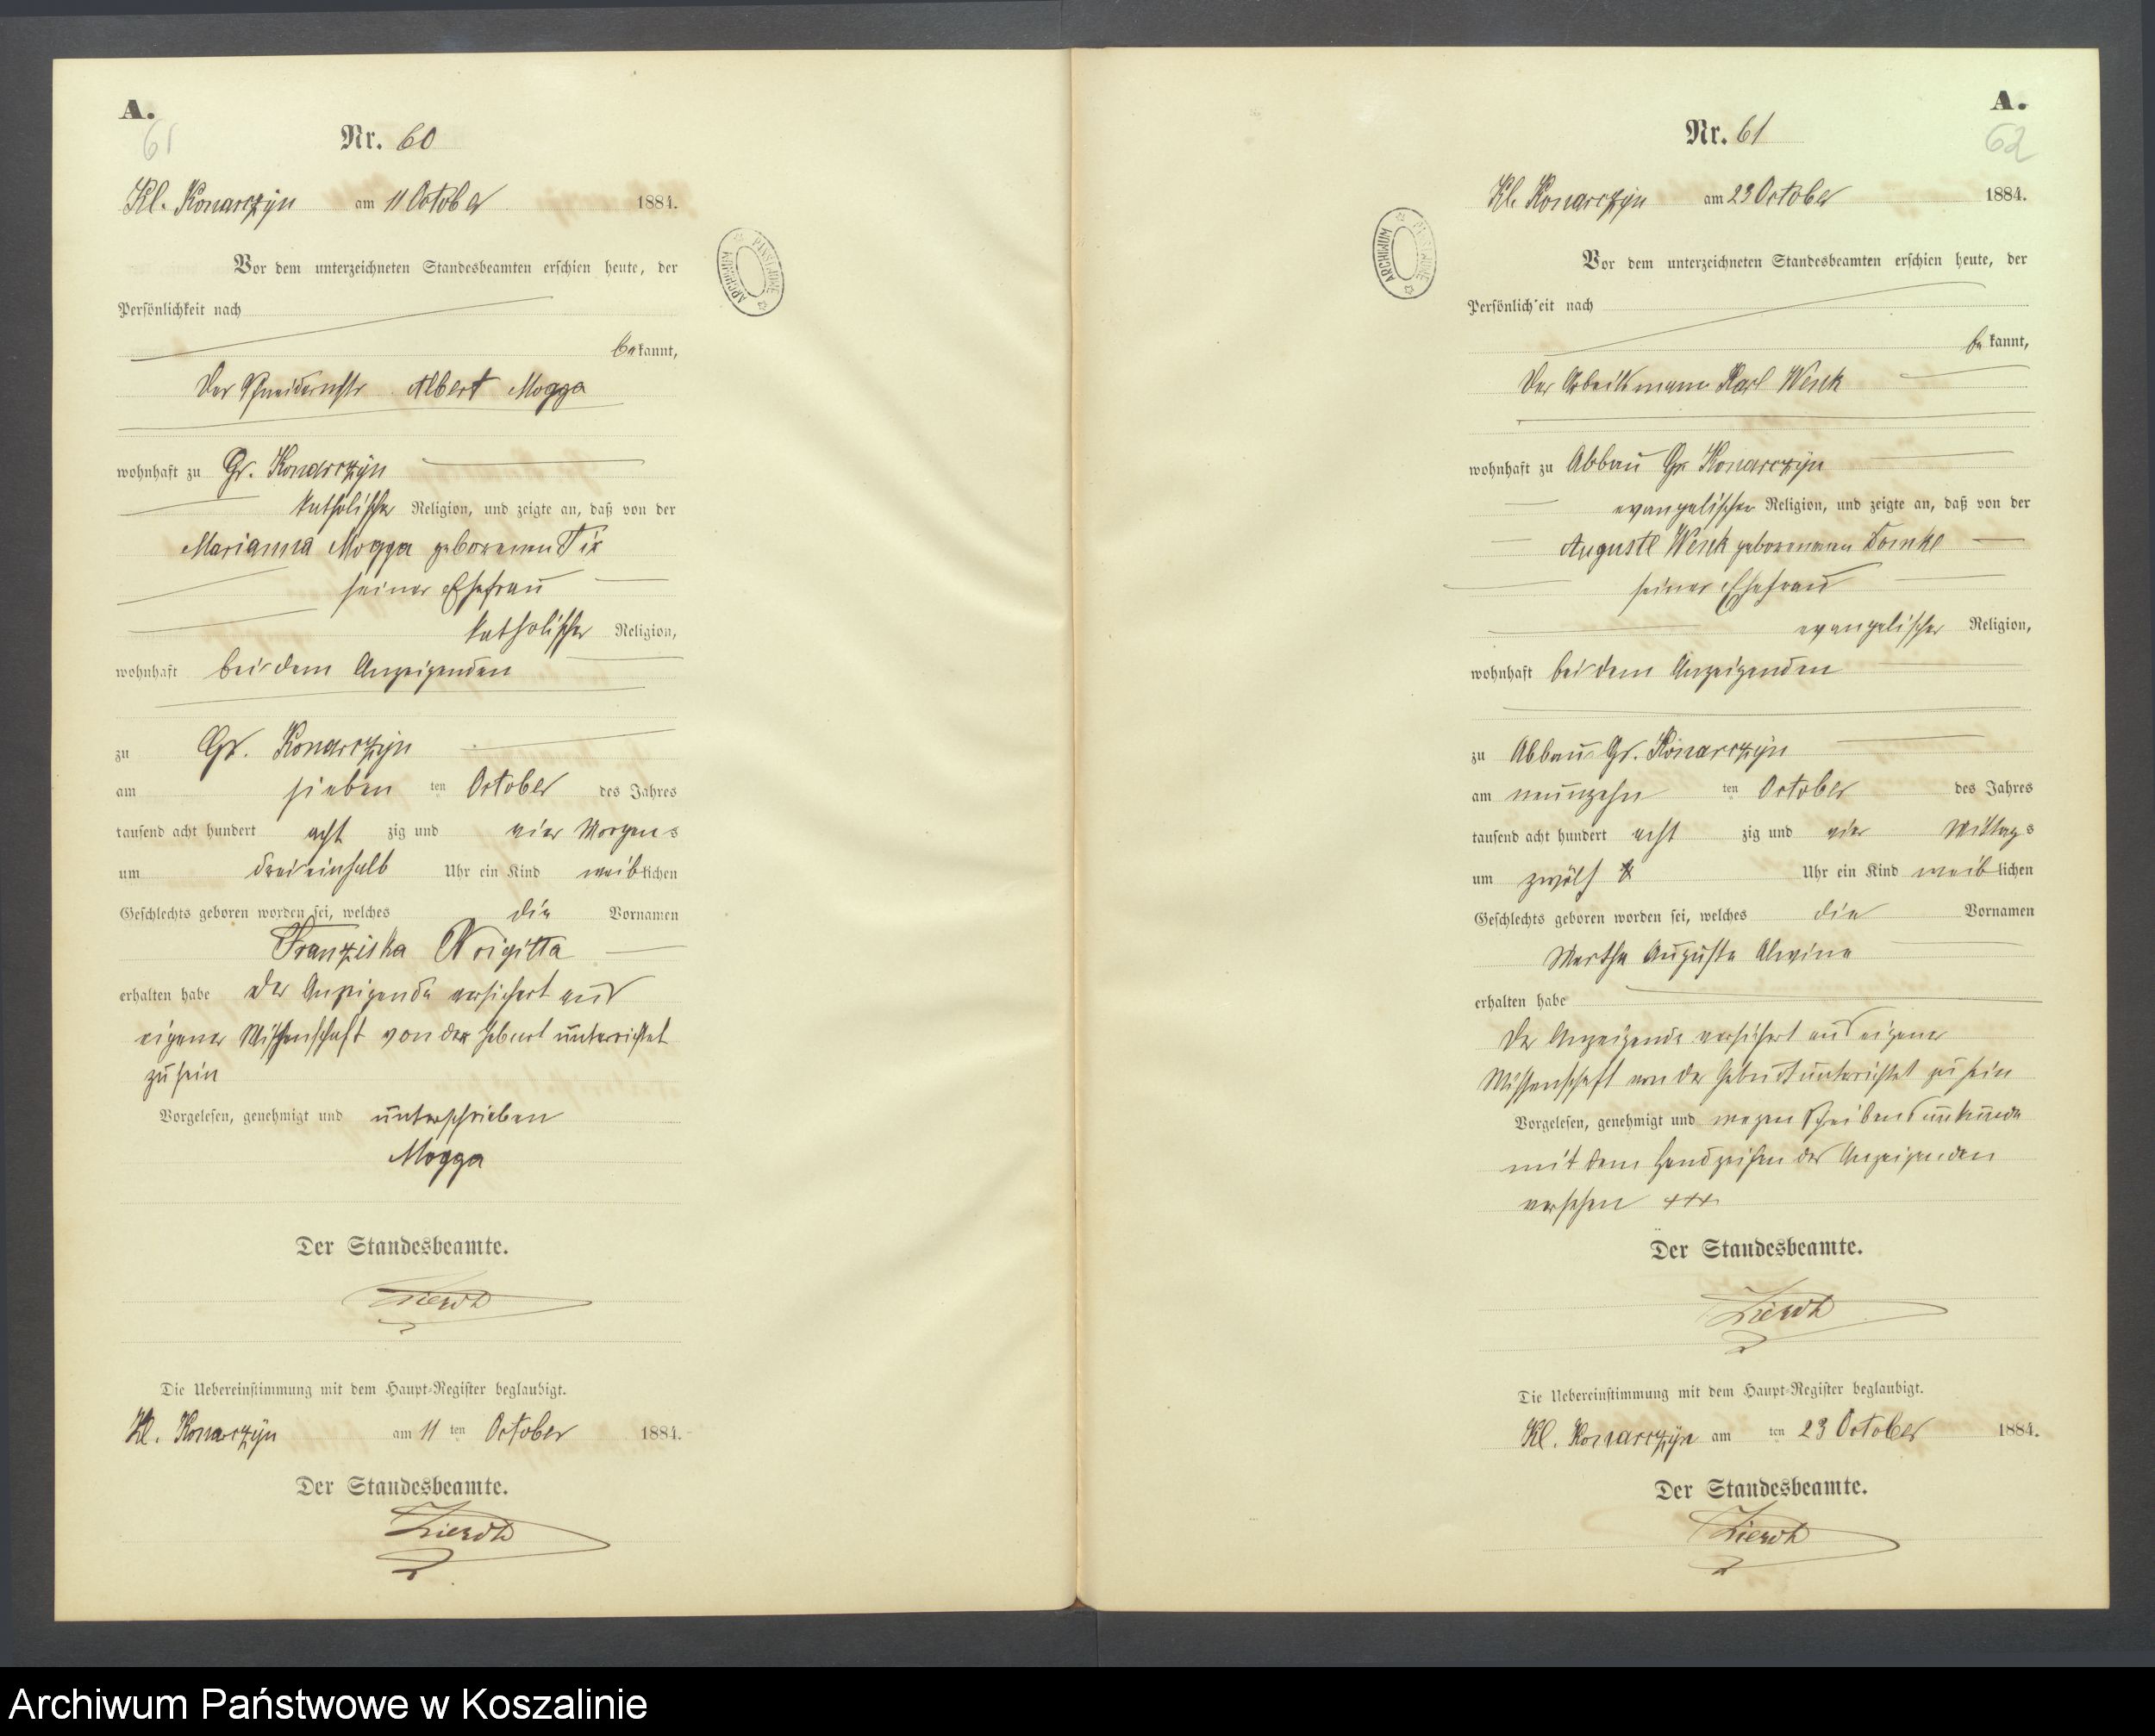 A.
61
Nr. 60
Kl. Konarczyn am 11 October 1884.
Vor dem unterzeichneten Standesbeamten erschien heute, der
Persönlichkeit nach
bekannt,
der Schneidermstr Albert Mogga
wohnhaft zu Gr. Konarczyn
katholischer Religion, und zeigte an, daß von der
Marianna Mogga geborenen Tix
seiner Ehefrau
katholischer Religion,
wohnhaft bei dem Anzeigenden
zu Gr. Konarczyn
am sieben ten October des Jahres
tausend acht hundert acht zig und vier Morgens
um dreieinhalb Uhr ein Kind weiblichen
Geschlechts geboren worden sei, welches die Vornamen
Franziska Brigitta
erhalten habe Der Anzeigende versichert aus
eigener Wissenschaft von der Geburt unterrichtet
zu sein
Vorgelesen, genehmigt und unterschrieben
Mogga
Der Standesbeamte.
Die Uebereinstimmung mit dem Haupt-Register beglaubigt.
Kl. Konarczyn am 11 ten October 1884.
Der Standesbeamte.
A.
62
Nr. 61
Kl. Konarczyn am 23 October 1884.
Vor dem unterzeichneten Standesbeamten erschien heute, der
Persönlichkeit nach
bekannt,
der Arbeitsmann Karl
wohnhaft zu Abbau Gr. Konarczyn
evangelischer Religion, und zeigte an, daß von der
Auguste geborenen Domke
seiner Ehefrau
evangelischer Religion,
wohnhaft bei dem Anzeigenden
zu Abbau Gr. Konarczyn
am neunzehn ten October des Jahres
tausend acht hundert acht zig und vier Mittags
um zwölf Uhr ein Kind weiblichen
Geschlechts geboren worden sei, welches die Vornamen
Martha Auguste Alwine
erhalten habe
Der Anzeigende versichert aus eigener
Wissenschaft von der Geburt unterrichtet zu sein
Vorgelesen, genehmigt und wegen Schreibensunkunde
mit dem Handzeichen des Anzeigenden
versehen +++
Der Standesbeamte.
Die Uebereinstimmung mit dem Haupt-Register beglaubigt.
Kl. Konarczyn am ten 23 October 1884.
Der Standesbeamte.
ARCHIWUM PAŃSTWOWE
ARCHIWUM PAŃSTWOWE
Archiwum Państwowe w Koszalinie